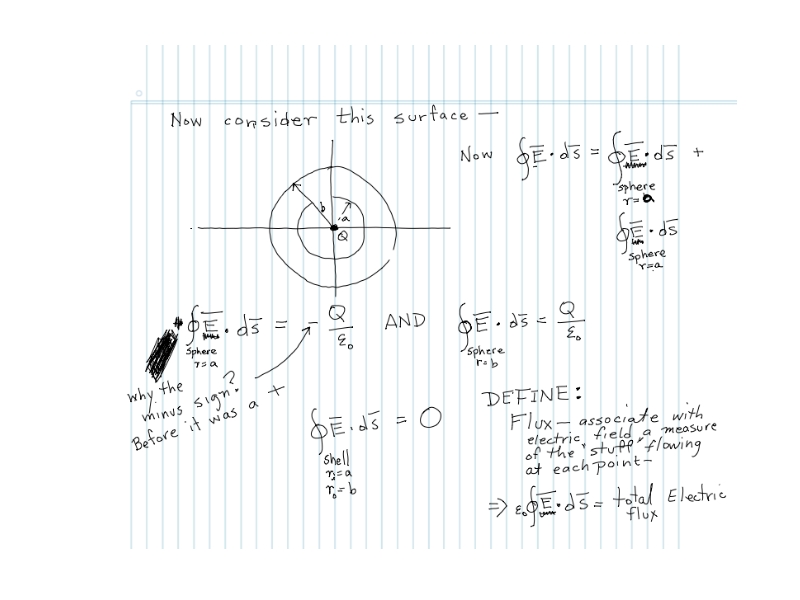 Now consider this surface —
Now ∮E̅ · ds̅ = ∮E̅ · ds̅ +
sphere
r = a
∮E̅ · ds̅
sphere
r = a
b
a
Q
∮E̅ · ds̅ = - Q/ε₀ AND ∮E̅ · ds̅ = Q/ε₀
sphere
r = a
sphere
r = b
why the
minus sign?
Before it was a +
∮E̅ · ds̅ = 0
shell
rᵢ = a
r₀ = b
DEFINE:
Flux — associate with
electric field a measure
of the "stuff" flowing
at each point —
⇒ ε₀∮E̅ · ds̅ = total Electric
flux